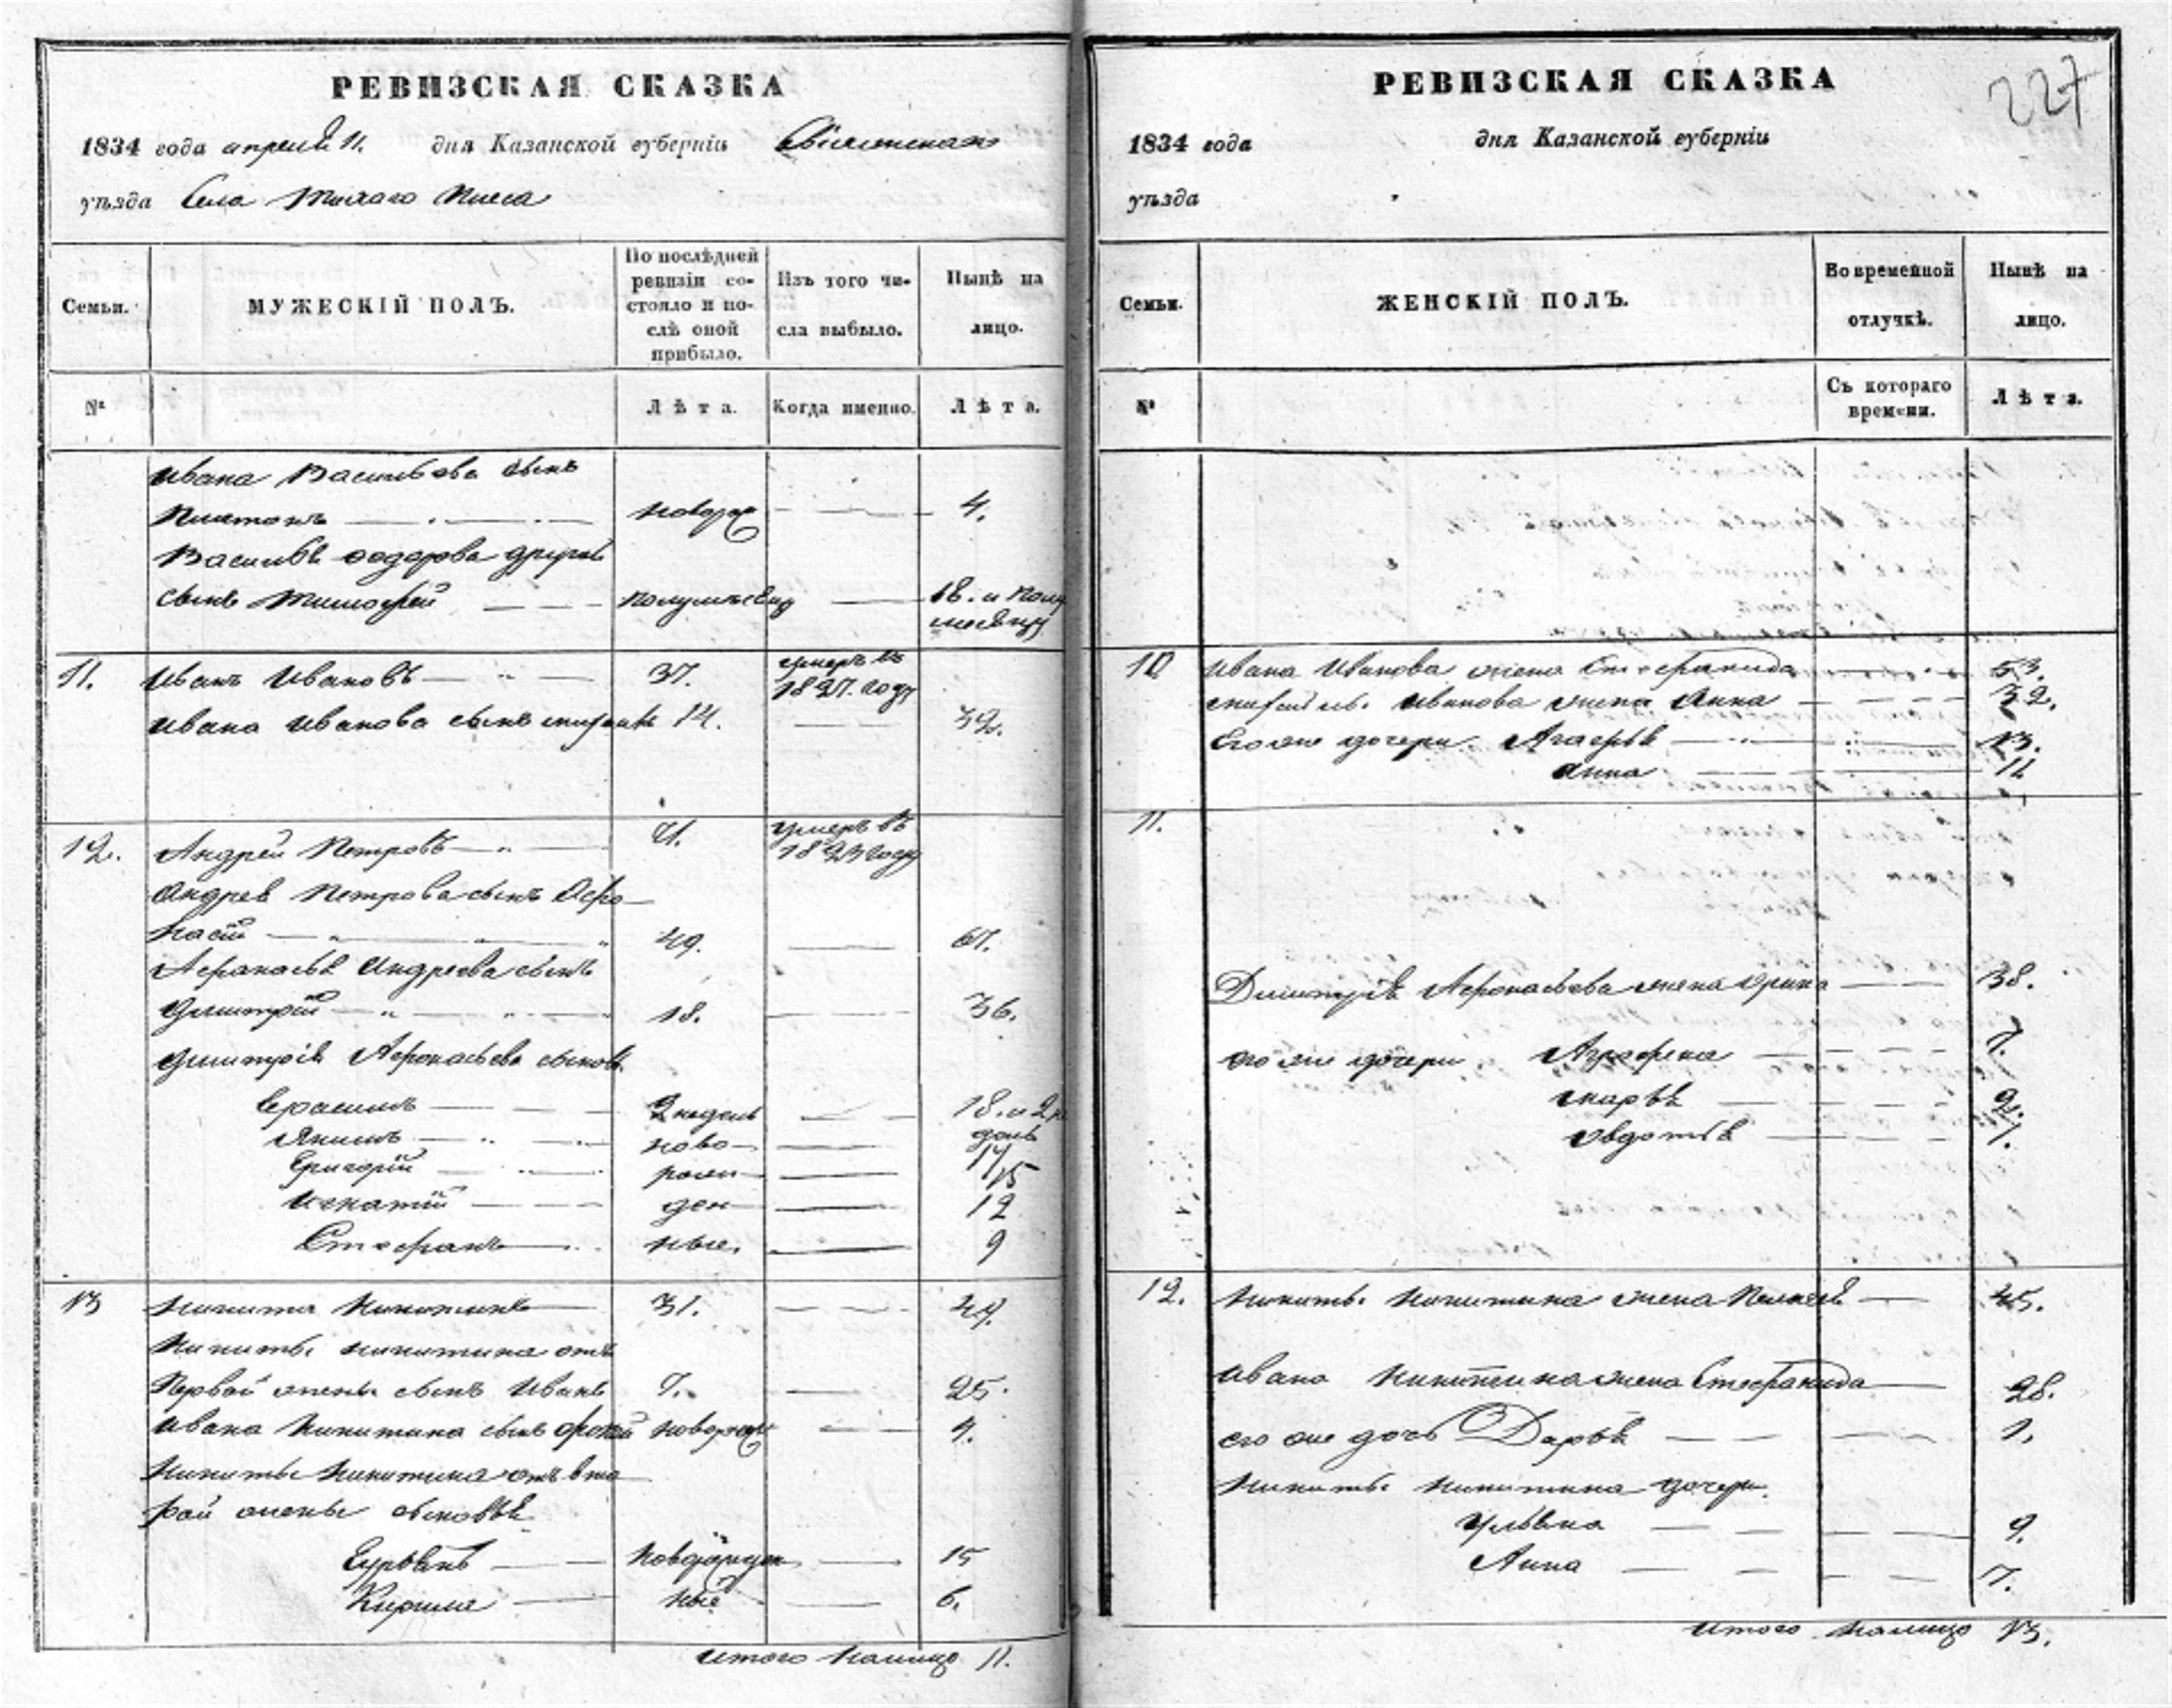 РЕВИЗСКАЯ СКАЗКА
1834 года апреля 11. дня Казанской губернiи
уѣзда Села
Семьи.
МУЖЕСКIЙ ПОЛЪ.
По послѣдней
ревизiи со-
стояло и по-
слѣ оной
прибыло.
Изъ того чи-
сла выбыло.
Нынѣ на
лицо.
№
Лѣта.
Когда именно.
Лѣта.
Ивана Васильева сынъ
Платонъ новорож 4.
Василья Федорова другой
сынъ Тимофей полумѣсяц 18. и полу
мѣсяцу
11. Иванъ Ивановъ 37. умеръ въ
1827. году
Ивана Иванова сынъ 14. 32.
12. Андрей Петровъ 71. умеръ въ
1823 году
Андрея Петрова сынъ Афо-
насiй 49. 67.
Афонасья Андреева сынъ
Дмитрiй 18. 36.
Дмитрiя Афонасьева сыновья
Герасимъ 2 недель 18. и 2 не
дель
Якимъ ново 17
Григорiй рож 15
Игнатiй ден 12
Стефанъ ные. 9
13 Никита Никитинъ 31. 49.
Никиты Никитина отъ
Первой жены сынъ Иванъ 7. 25.
Ивана Никитина сынъ новорож 4.
Никиты Никитина отъ вто
рой жены сыновья
Гурьянъ новорожден 15
Кирила ные 6.
итого налицо 11.
РЕВИЗСКАЯ СКАЗКА
227
1834 года дня Казанской губернiи
уѣзда
Семьи.
ЖЕНСКIЙ ПОЛЪ.
Во временной
отлучкѣ.
Нынѣ на
лицо.
№
Съ котораго
времени.
Лѣта.
10 Ивана Иванова жена Стефанида 53.
Иванова жена Анна 32.
Его же дочери Агафья 13.
Анна 11
11.
Дмитрiя Афонасьева жена Орина 38.
его же дочери Аграфена 7.
Марья 2.
Овдотья 1.
12. Никиты Никитина жена Пелагея 45.
Ивана Никитина жена Стефанида 28.
его же дочь Дарья 1.
Никиты Никитина дочери
Ульяна 9.
Анна 7.
итого налицо 13.